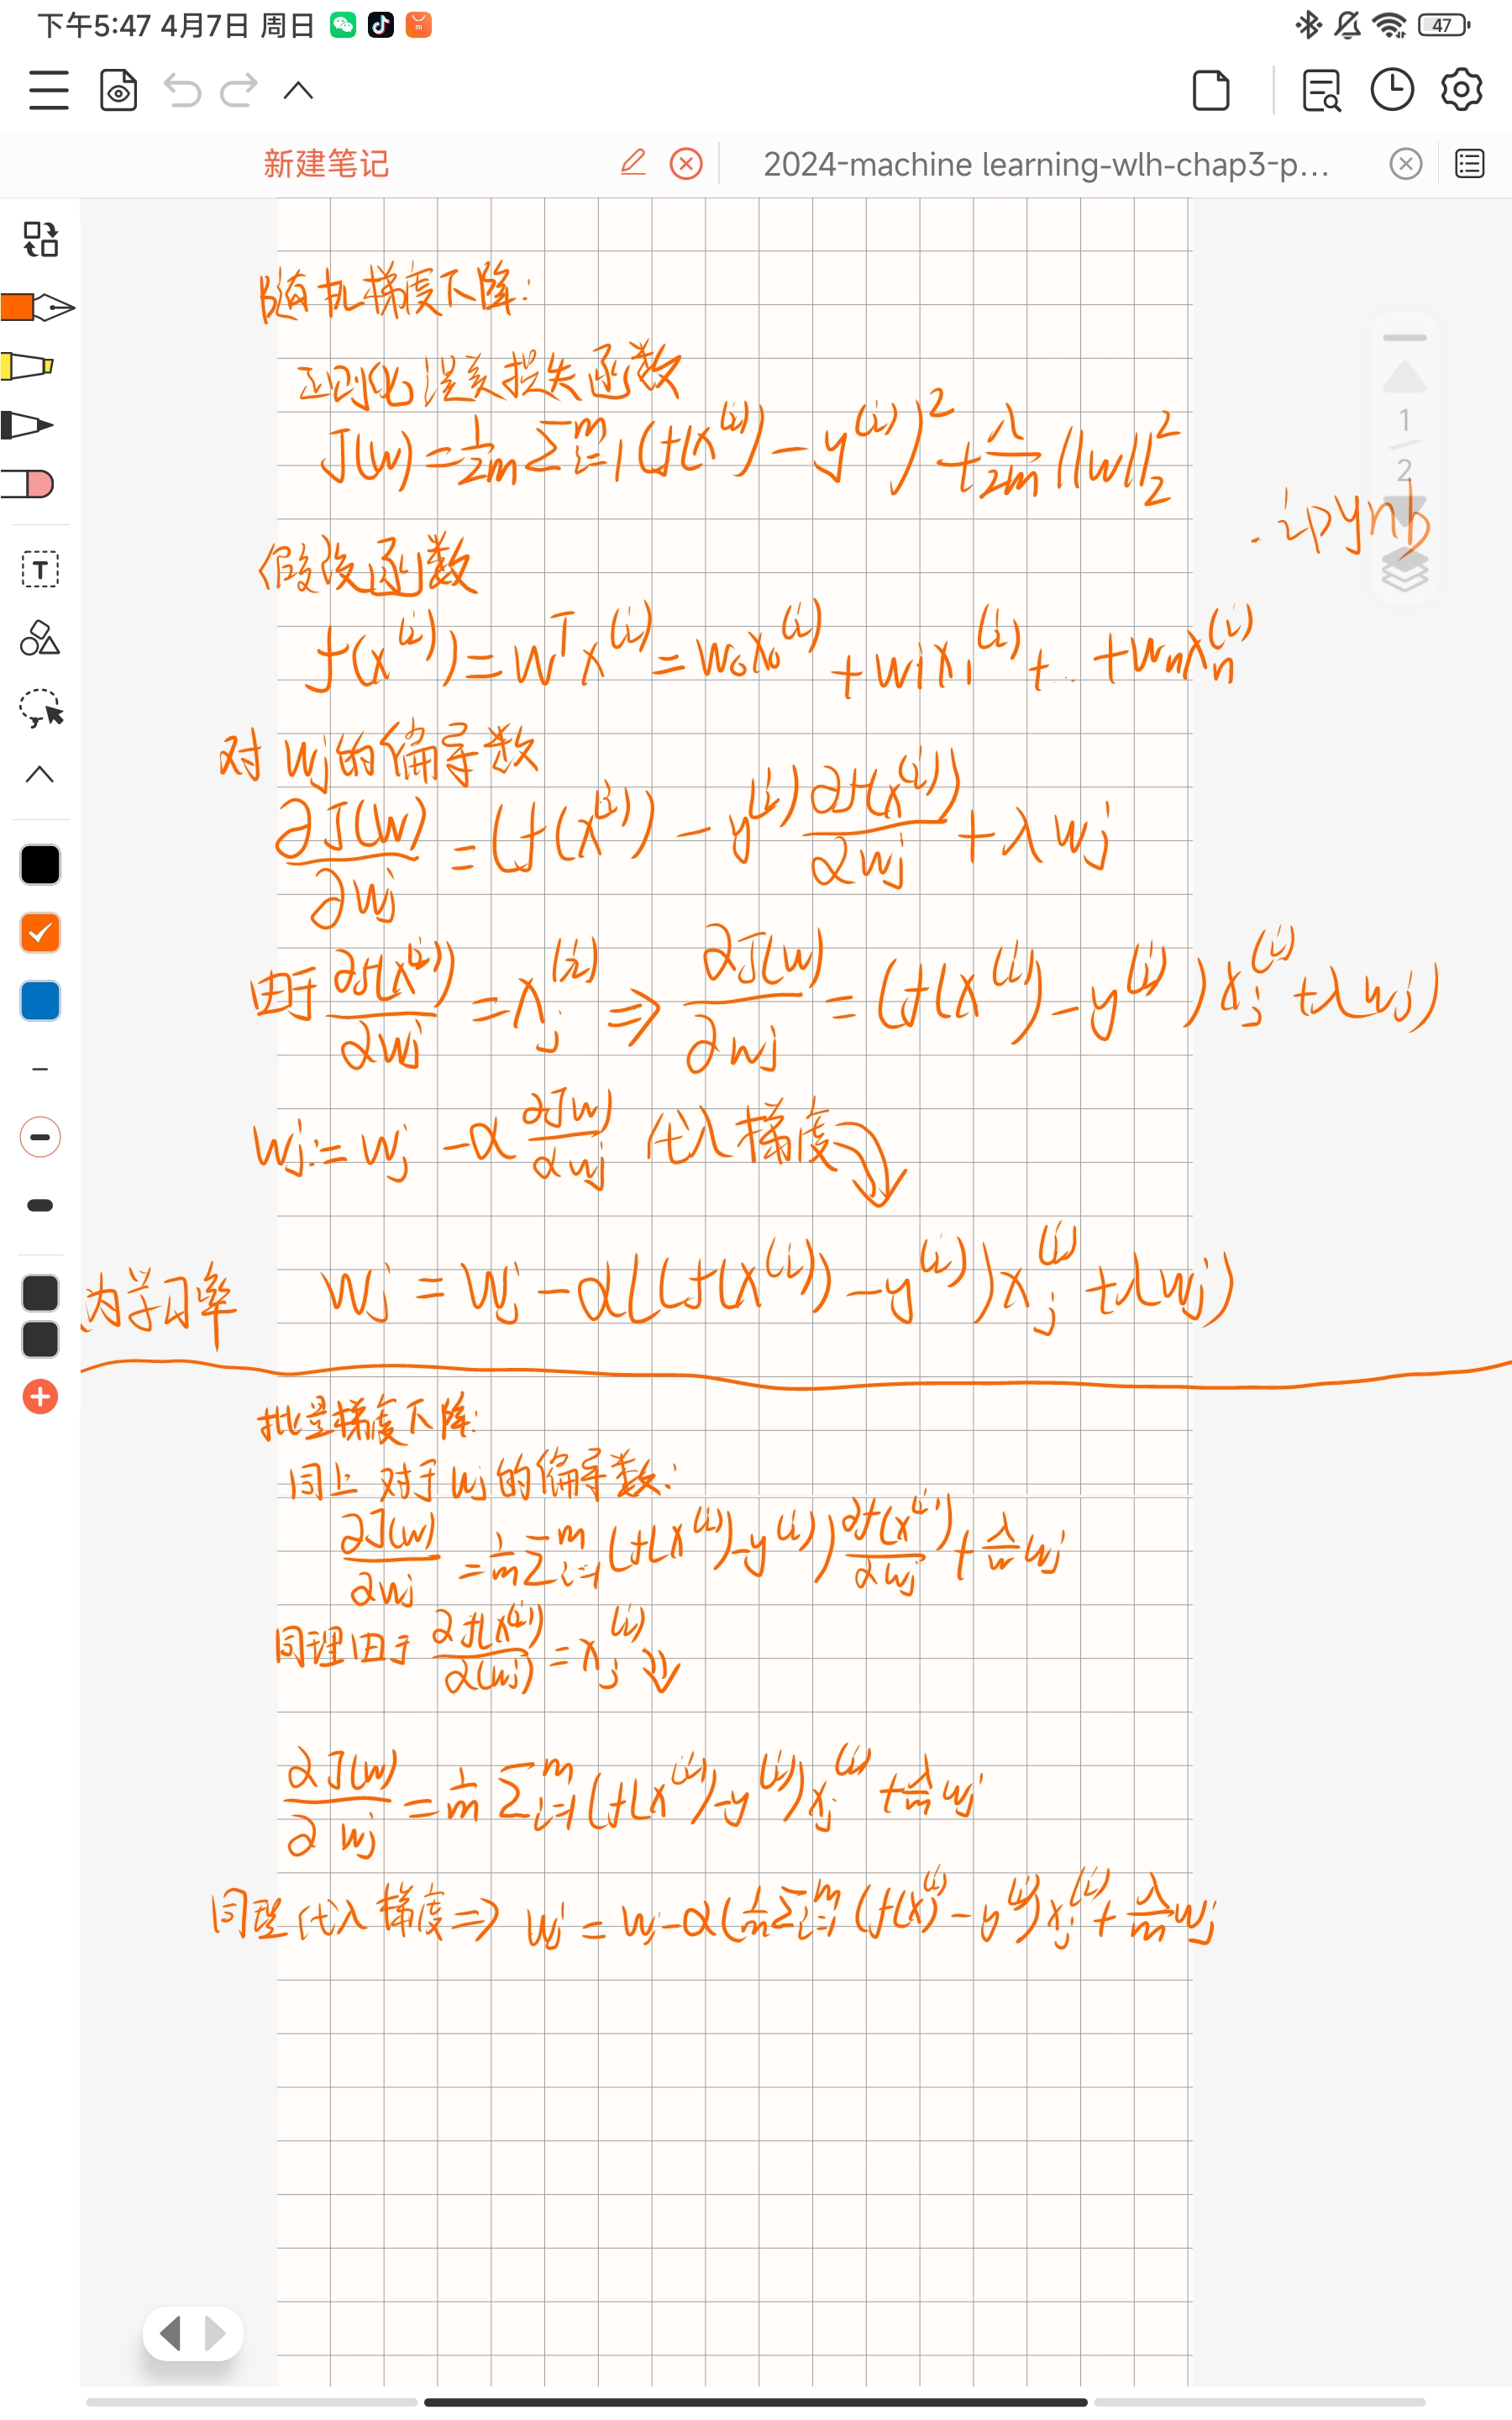 下午5:47 4月7日 周日
47
新建笔记
2024-machine learning-wlh-chap3-p...
随机梯度下降:
正则化误差损失函数
J(w) = 1/2m Σ^m_i=1 (f(x^(i)) - y^(i))^2 + λ/2m ||w||^2_2
1
2
.ipynb
假设函数
f(x^(i)) = w^T x^(i) = w_0x_0^(i) + w_1x_1^(i) + .. + w_nx_n^(i)
对wj的偏导数
∂J(w)/∂wj = (f(x^(i)) - y^(i)) ∂f(x^(i))/∂wj + λwj
由于 ∂f(x^(i))/∂wj = x_j^(i) ⇒ ∂J(w)/∂wj = (f(x^(i)) - y^(i)) x_j^(i) + λwj)
wj := wj - α ∂J(w)/∂wj 代入梯度
为学习率 wj = wj - α((f(x^(i)) - y^(i)) x_j^(i) + λwj)
批量梯度下降:
同上 对于wj的偏导数:
∂J(w)/∂wj = 1/m Σ^m_i=1 (f(x^(i)) - y^(i)) ∂f(x^(i))/∂wj + λ/m wj
同理由于 ∂f(x^(i))/∂(wj) = x_j^(i) ⇓
∂J(w)/∂wj = 1/m Σ^m_i=1 (f(x^(i)) - y^(i)) x_j^(i) + λ/m wj
同理代入梯度 ⇒ wj = wj - α(1/m Σ^m_i=1 (f(x)^(i) - y^(i)) x_j^(i) + λ/m wj